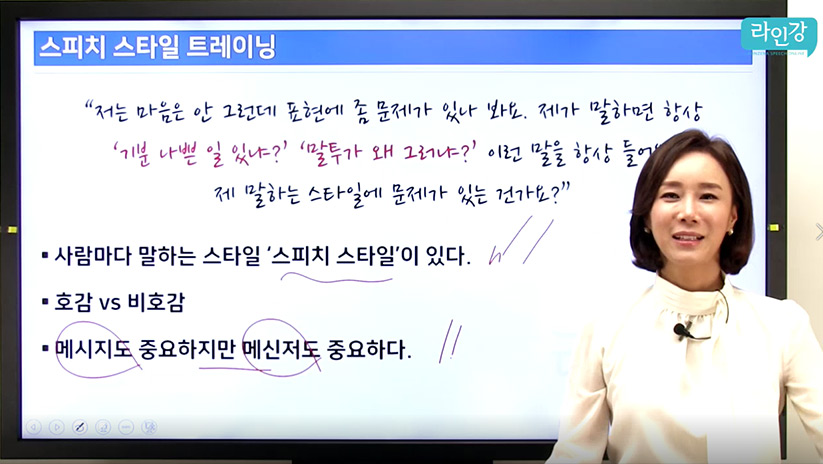 라인강
스피치 스타일 트레이닝
“저는 마음은 안 그런데 표현에 좀 문제가 있나 봐요. 제가 말하면 항상
‘기분 나쁜 일 있냐?’ ‘말투가 왜 그러냐?’ 이런 말을 항상
제 말하는 스타일에 문제가 있는 건가요?”
▪ 사람마다 말하는 스타일 ‘스피치 스타일’이 있다.
▪ 호감 vs 비호감
▪ 메시지도 중요하지만 메신저도 중요하다.